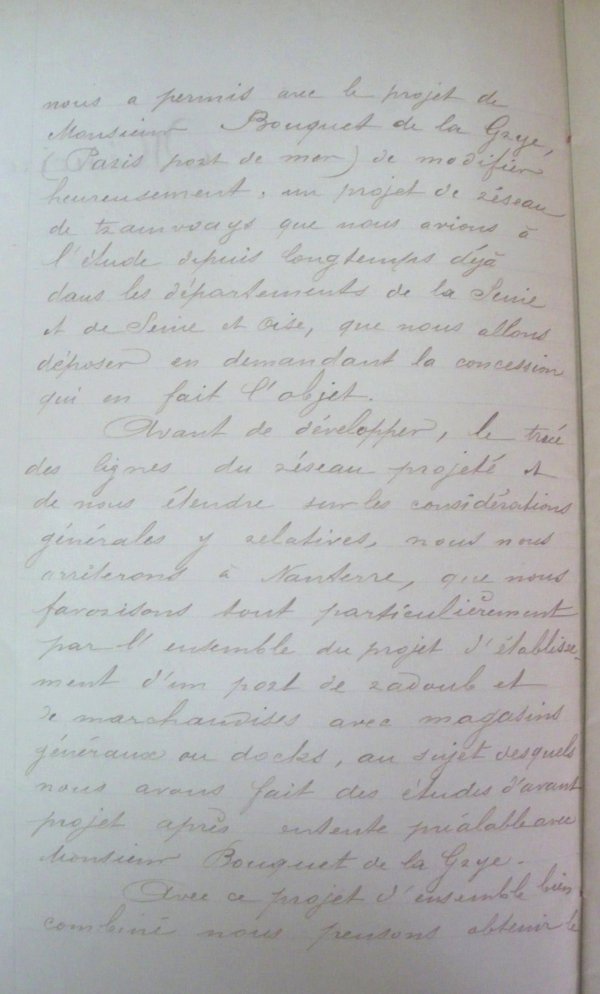 nous a permis avec le projet de
Monsieur Bouquet de la Grye,
(Paris port de mer) de modifier
heureusement, un projet de réseau
de tramways que nous avions à
l'étude depuis longtemps déjà
dans les départements de la Seine
et de Seine et Oise, que nous allons
déposer en demandant la concession
qui en fait l'objet.
Avant de développer, le tracé
des lignes du réseau projeté et
de nous étendre sur les considérations
générales y relatives, nous nous
arrêterons à Nanterre, que nous
favorisons tout particulièrement
par l'ensemble du projet d'établisse-
ment d'un port de radoub et
de marchandises avec magasins
généraux ou docks, au sujet desquels
nous avons fait des études d'avant
projet après entente préalable avec
Monsieur Bouquet de la Grye.
Avec ce projet d'ensemble bien
combiné nous pensons obtenir le